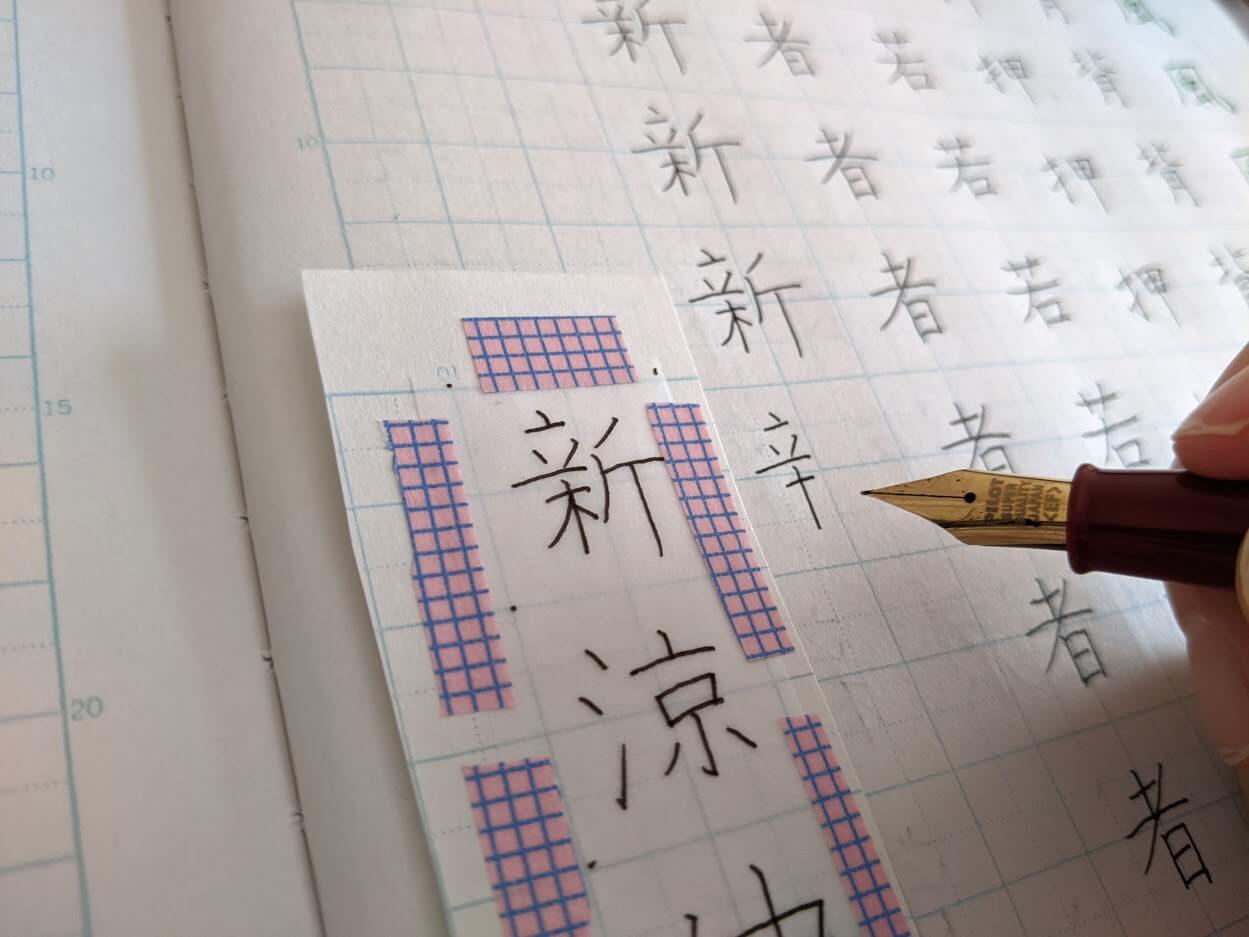 10
15
20
10
新者若押背風
新者若押背
新者若押
者若
者
者
新涼
PILOT
SUPER
QUALITY
JAPAN
<EF>